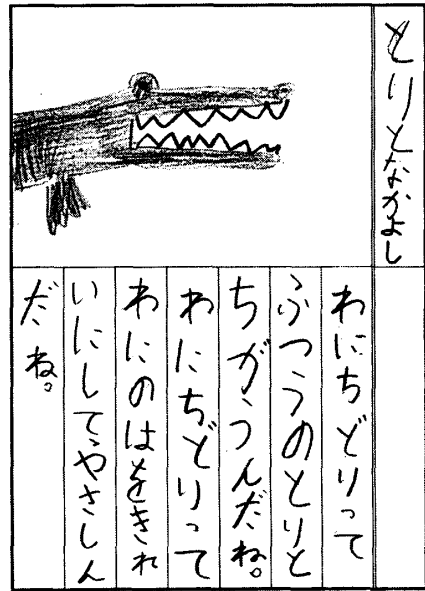 とりとなかよし
わにちどりって
ふつうのとりと
ちがうんだね。
わにちどりって
わにのはをきれ
いにしてやさしん
だね。